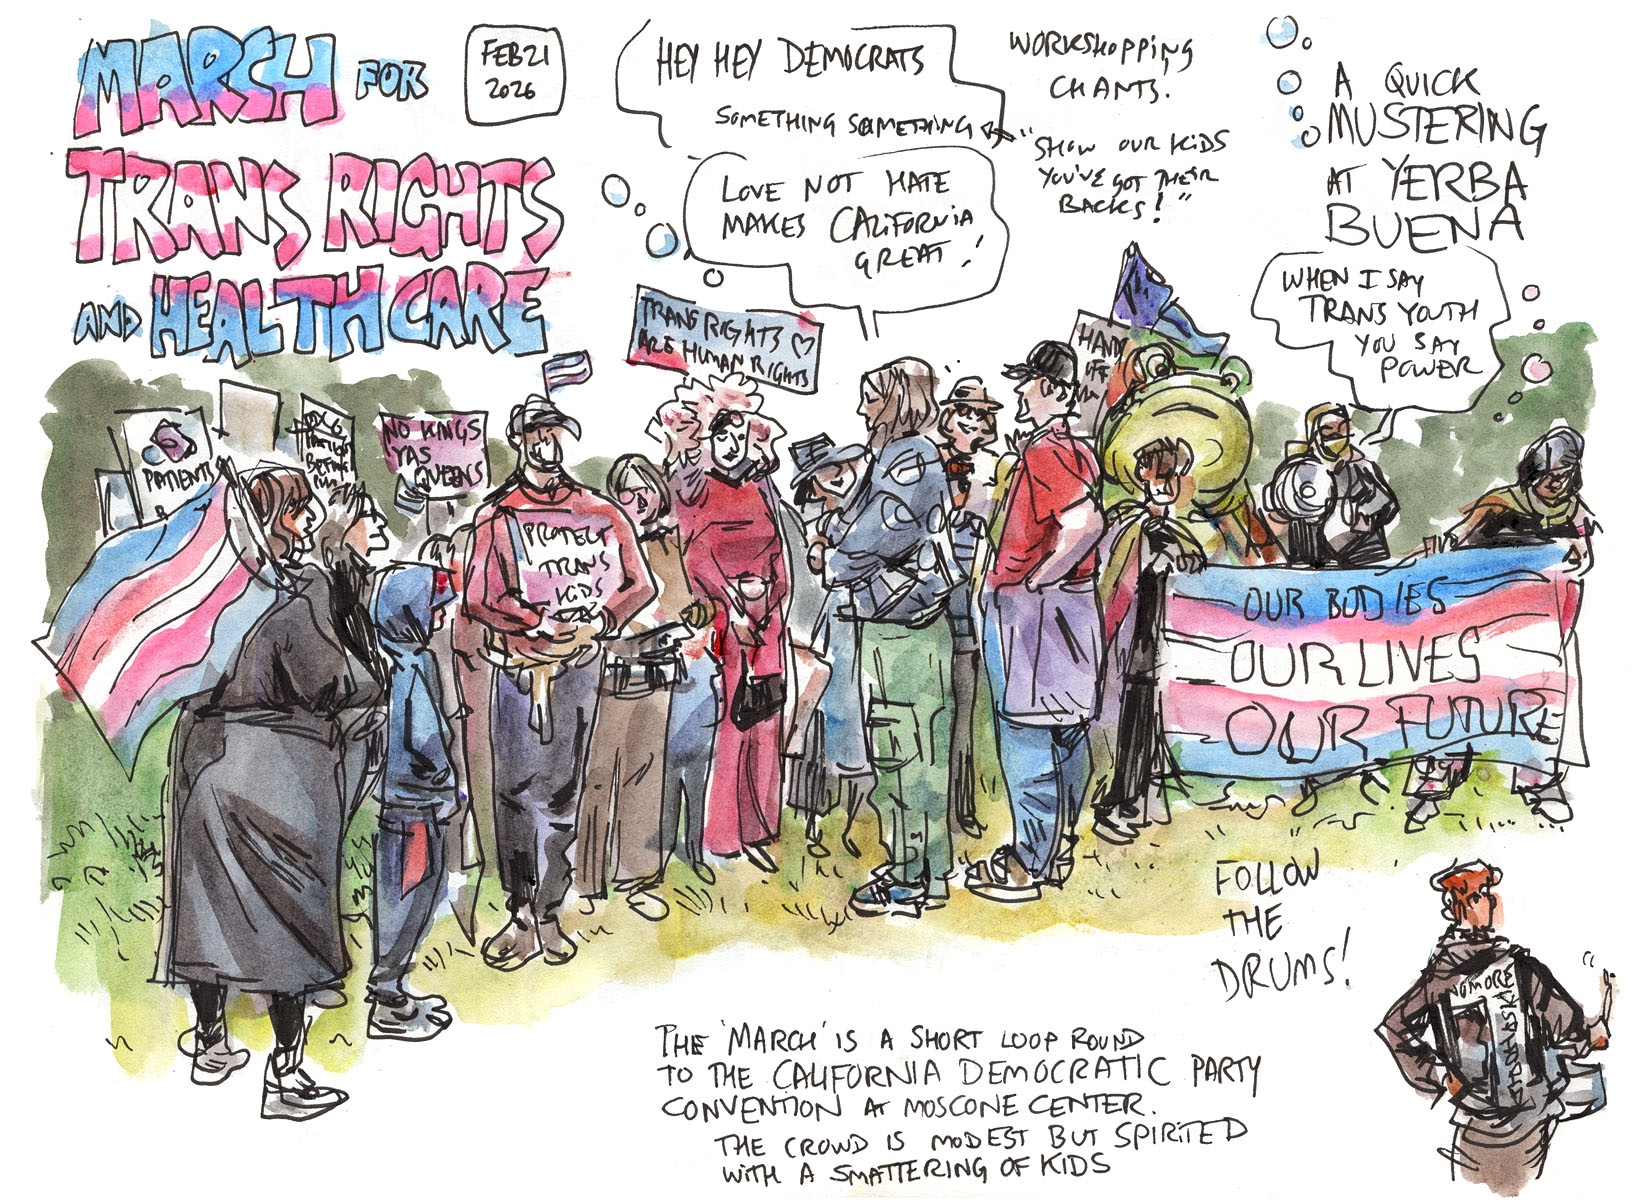 MARCH FOR
TRANS RIGHTS
AND HEALTHCARE
FEB 21
2026
HEY HEY DEMOCRATS
SOMETHING SOMETHING
WORKSHOPPING
CHANTS.
"SHOW OUR KIDS
YOU'VE GOT THEIR
BACKS!"
LOVE NOT HATE
MAKES CALIFORNIA
GREAT!
A QUICK
MUSTERING
AT YERBA
BUENA
WHEN I SAY
TRANS YOUTH
YOU SAY
POWER
TRANS RIGHTS
ARE HUMAN RIGHTS
HANDS
OFF
PATIENTS
BEFORE
NO KINGS
YAS
QUEENS
PATIENTS
PROTECT
TRANS
KIDS
OUR BODIES
OUR LIVES
OUR FUTURE
FOLLOW
THE
DRUMS!
NO MORE
THE 'MARCH' IS A SHORT LOOP ROUND
TO THE CALIFORNIA DEMOCRATIC PARTY
CONVENTION AT MOSCONE CENTER.
THE CROWD IS MODEST BUT SPIRITED
WITH A SMATTERING OF KIDS